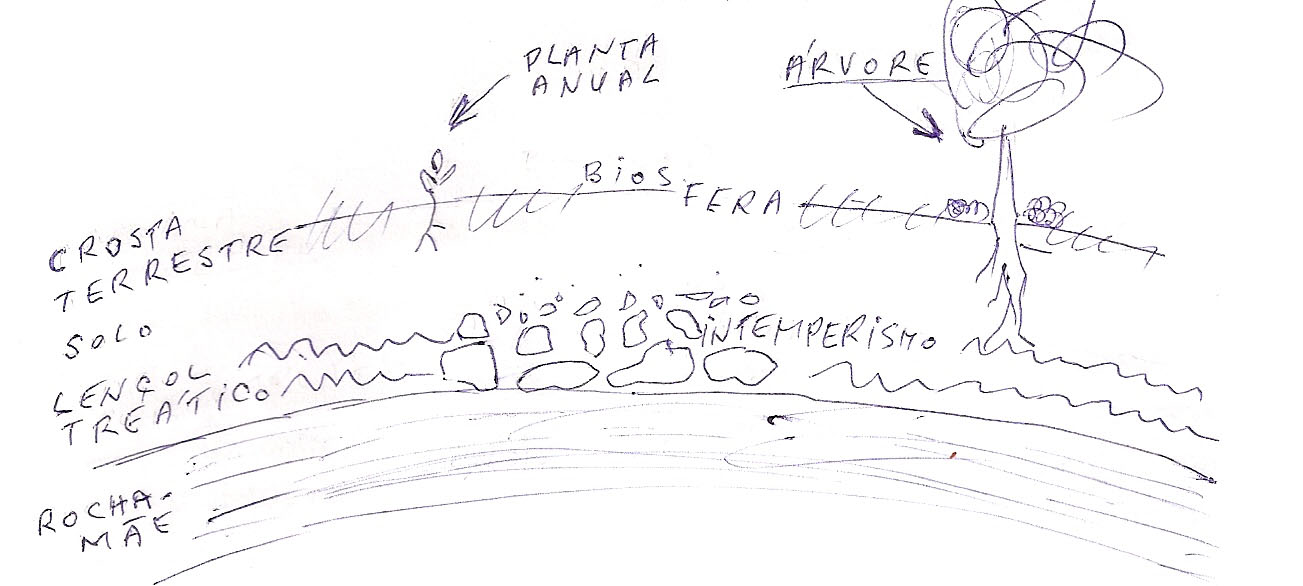 PLANTA
ANUAL
ÁRVORE
BiOSFERA
CROSTA
TERRESTRE
SOLO
INTEMPERiSMO
LENÇOL
TREÁTiCO
ROCHA-
MÃE